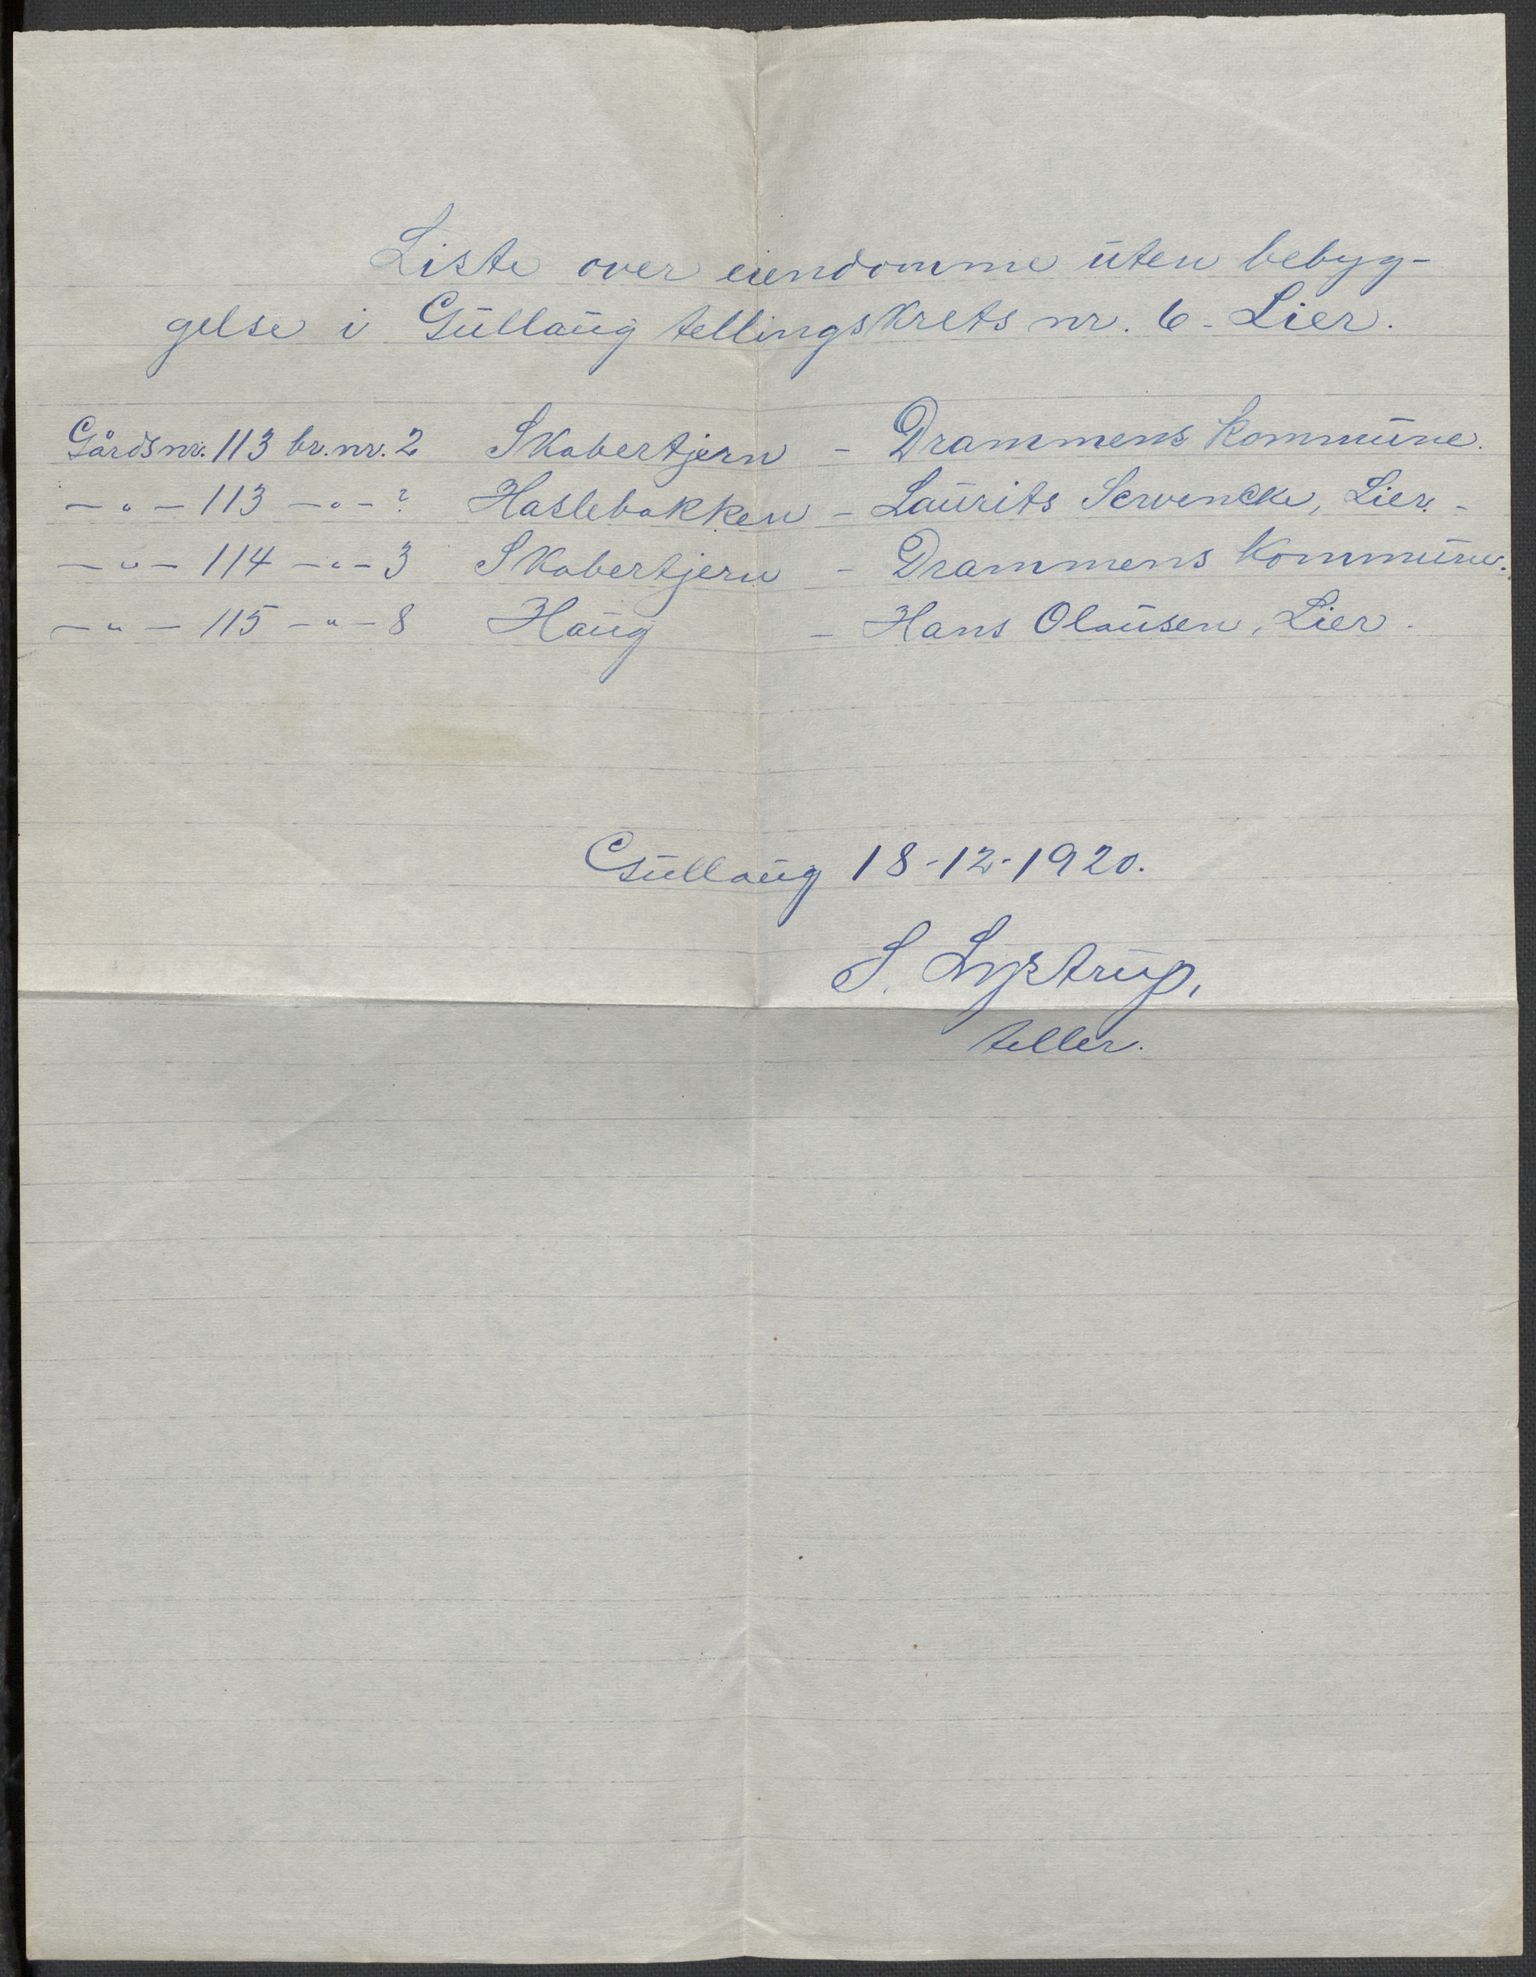 Liste over eiendomme uten bebyg-
gelse i Gullaug tellingskrets nr. 6 - Lier.
Gårdsnr. 113 br. nr. 2 Skobertjern - Drammens kommune.
- " - 113 - " - ? Haslebakken - Laurits Scwencke, Lier. -
- " - 114 - " - 3 Skobertjern - Drammens kommune.
- " - 115 - " - 8 Haug - Hans Olausen, Lier.
Gullaug 18-12-1920.
S. Lystrup,
teller.